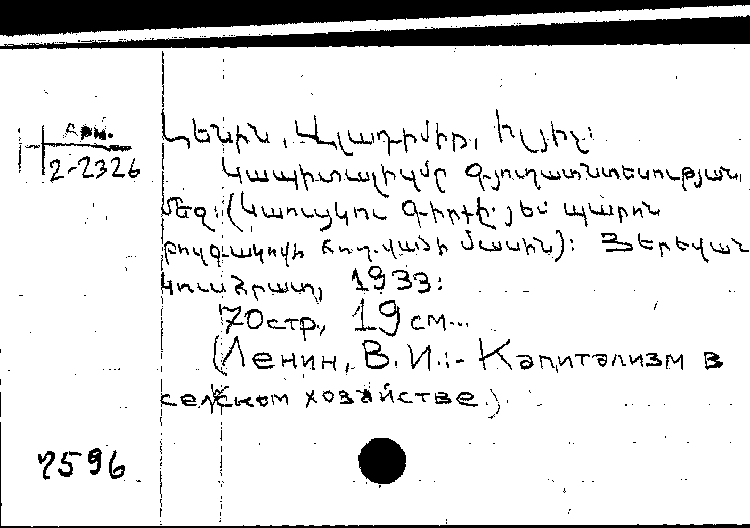 Арм.
2-2326
Լենին, Վլադիմիր, Իլյիչ:
Կապիտալիզմը գյուղատնտեսության
մեջ: (Կաուցկու գիրքը յեվ պարոն
բուլգակովի հոդվածի մասին): Յերեվան
կուսհրատ, 1933:
70стр., 19 см...
(Ленин, В. И.:- Капитализм в
сельском хозяйстве.)
7596